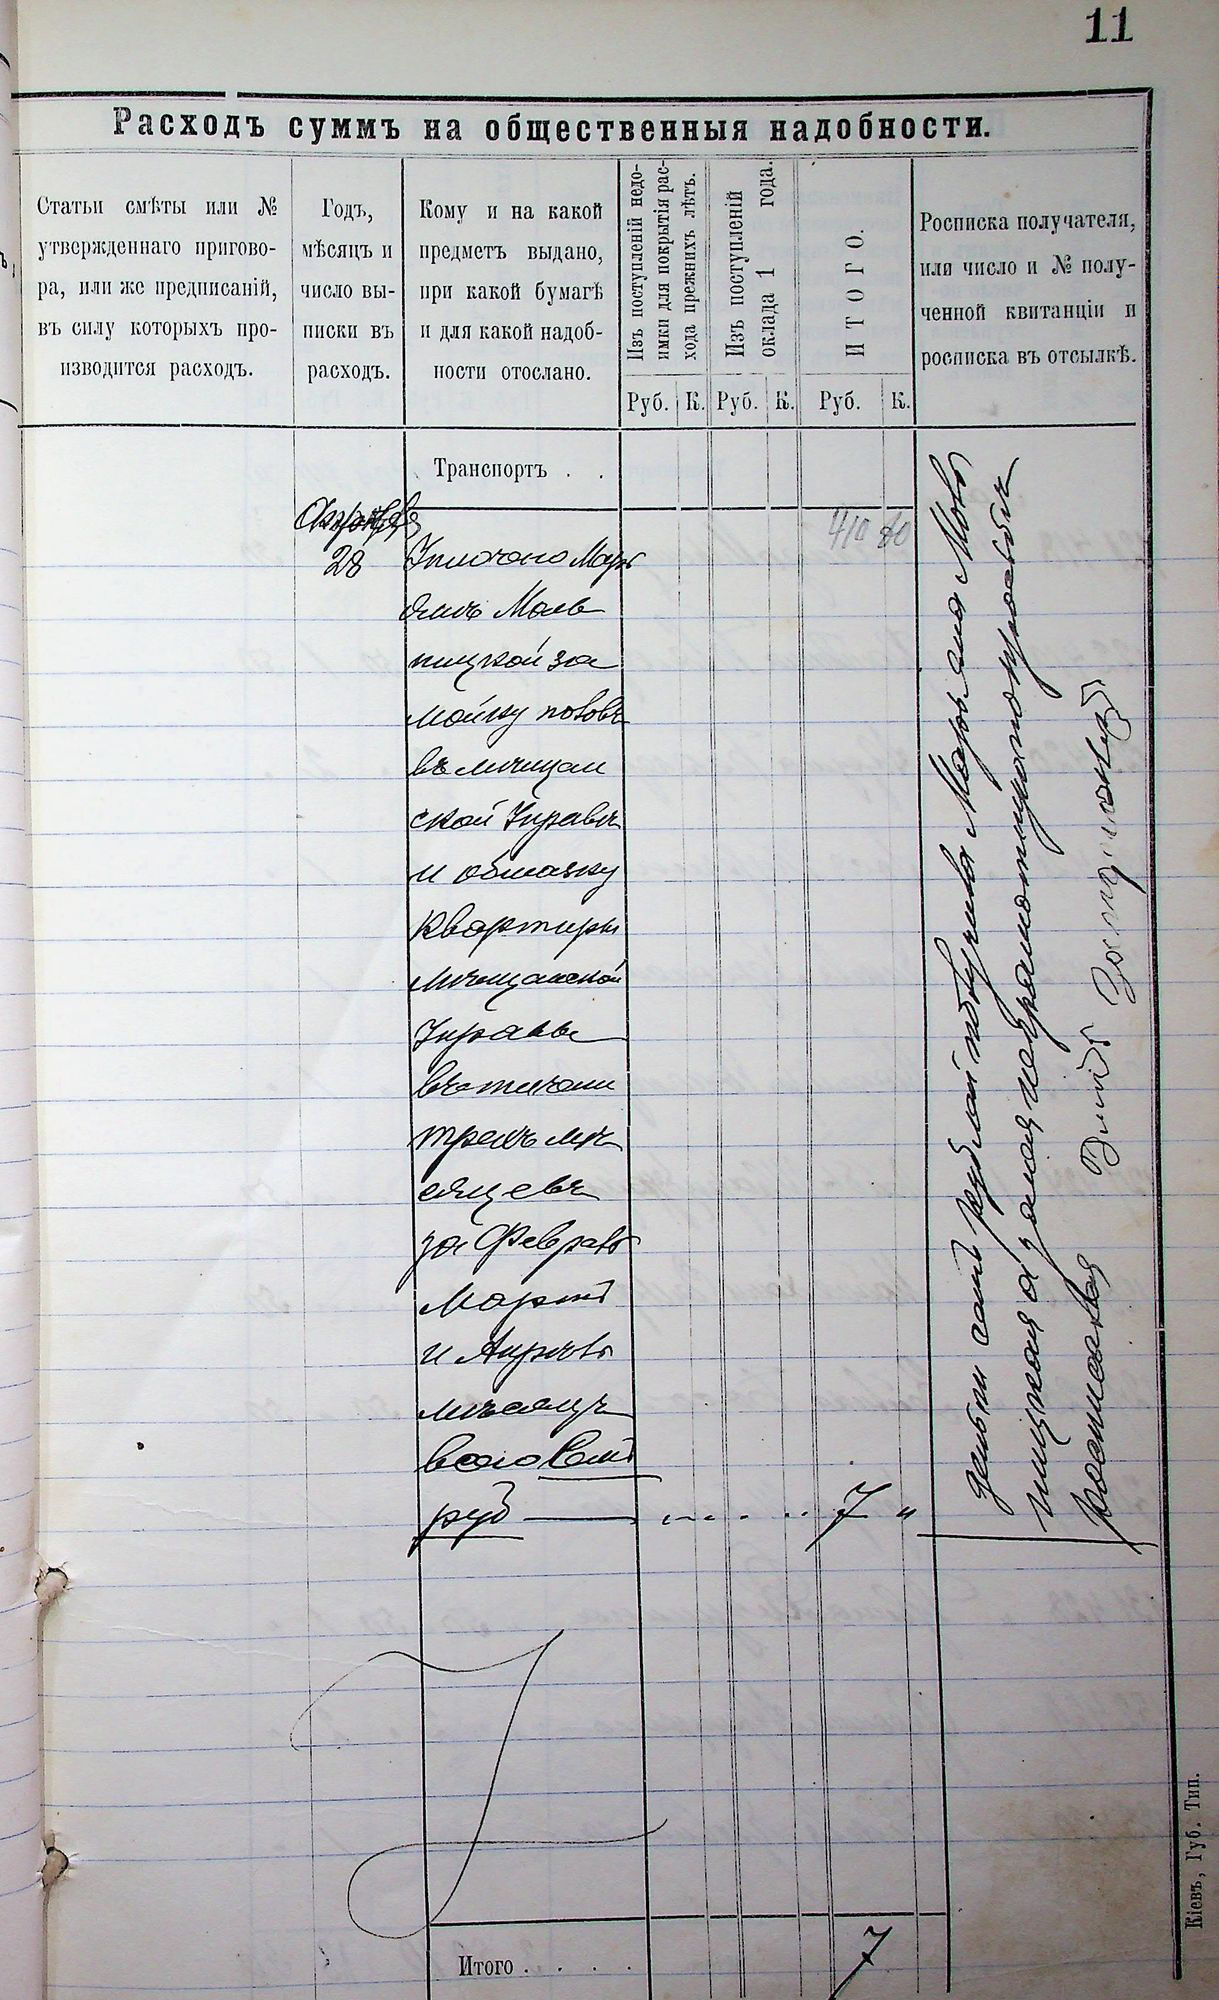 11
Расходъ суммъ на общественныя надобности.
Статьи смѣты или №
утвержденнаго пригово-
ра, или же предписаній,
въ силу которыхъ про-
изводится расходъ.
Годъ,
мѣсяцъ и
число вы-
писки въ
расходъ.
Кому и на какой
предметъ выдано,
при какой бумагѣ
и для какой надоб-
ности отослано.
Изъ поступленій недо-
имки для покрытія рас-
хода прежнихъ лѣтъ.
Изъ поступленій
оклада 1 года.
ИТОГО.
Росписка получателя,
или число и № полу-
ченной квитанціи и
росписка въ отсылкѣ.
Руб. К. Руб. К. Руб. К.
Транспортъ . .
410 80
28
Уплочено Марь
пицкой за
мойку половъ
въ мѣщан
ской Управѣ
и обмазку
квартиры
мѣщанской
Управы
въ теченіи
трехъ мѣ
сяцевъ
за Февраль
Мартъ
и Апрѣль
мѣсяцъ
всего Семь
руб 7 "
деньги семь рублей получила Марьяна
пицкая а за нея неграмотную по просьбѣ
росписался
Итого . . . . 7
Кіевъ, Губ. Тип.